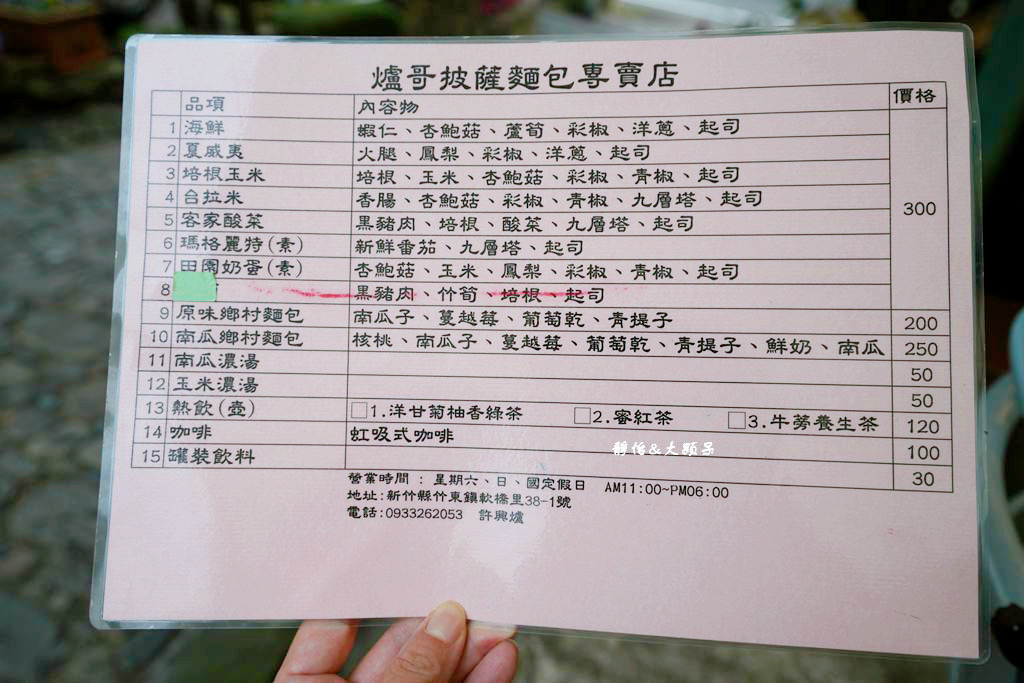 爐哥披薩麵包專賣店
品項 內容物 價格
1 海鮮 蝦仁、杏鮑菇、蘆筍、彩椒、洋蔥、起司
2 夏威夷 火腿、鳳梨、彩椒、洋蔥、起司
3 培根玉米 培根、玉米、杏鮑菇、彩椒、青椒、起司
4 台拉米 香腸、杏鮑菇、彩椒、青椒、九層塔、起司 300
5 客家酸菜 黑豬肉、培根、酸菜、九層塔、起司
6 瑪格麗特(素) 新鮮番茄、九層塔、起司
7 田園奶蛋(素) 杏鮑菇、玉米、鳳梨、彩椒、青椒、起司
8 黑豬肉、竹筍、培根、起司
9 原味鄉村麵包 南瓜子、蔓越莓、葡萄乾、青提子 200
10 南瓜鄉村麵包 核桃、南瓜子、蔓越莓、葡萄乾、青提子、鮮奶、南瓜 250
11 南瓜濃湯 50
12 玉米濃湯 50
13 熱飲(壺) □1.洋甘菊柚香綠茶 □2.蜜紅茶 □3.牛蒡養生茶 120
14 咖啡 虹吸式咖啡 100
15 罐裝飲料 30
靜怡&大顆呆
營業時間：星期六、日、國定假日 AM11:00~PM06:00
地址:新竹縣竹東鎮軟橋里38-1號
電話:0933262053 許興爐